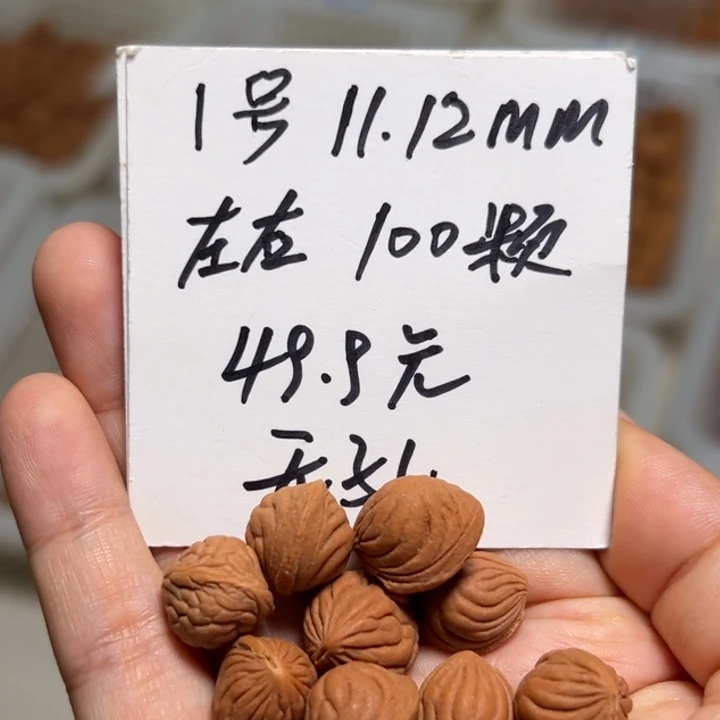 1号 11.12mm
左右 100颗
49.9元
无孔